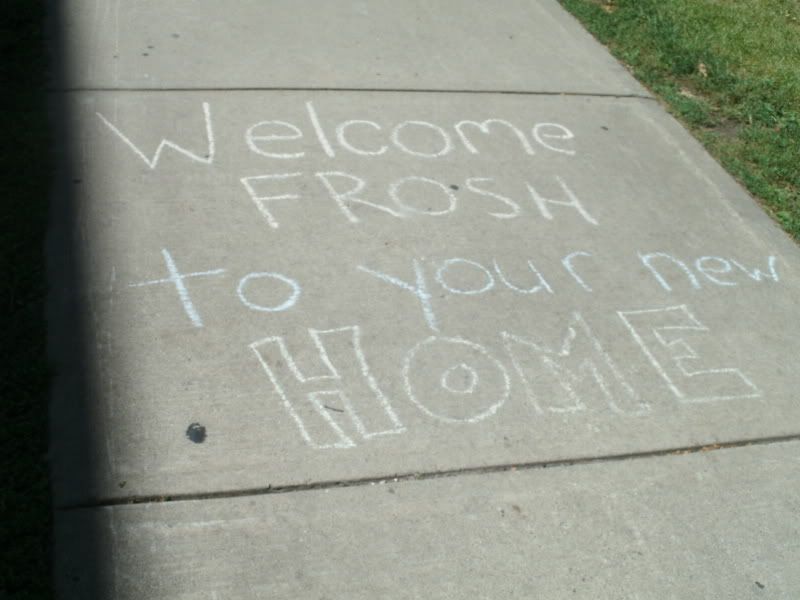 Welcome
FROSH
to your new
HOME